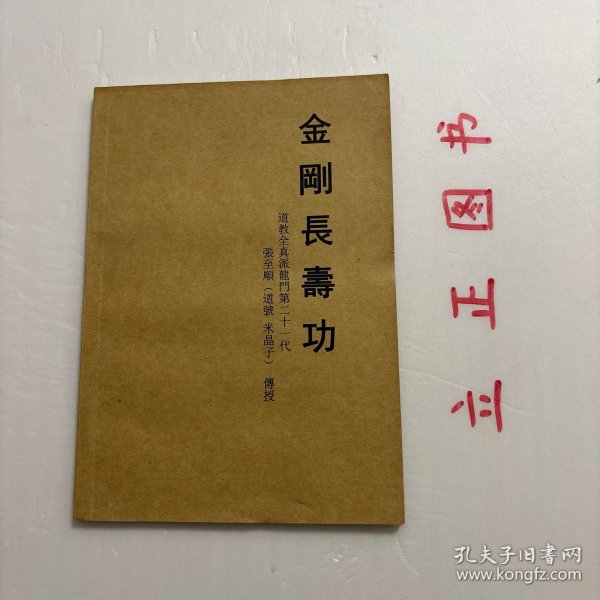 金剛長壽功
道教全真派龍門第二十一代
張至順（道號 米晶子） 傳授
立正图书
孔夫子旧书网
www.kongfz.com